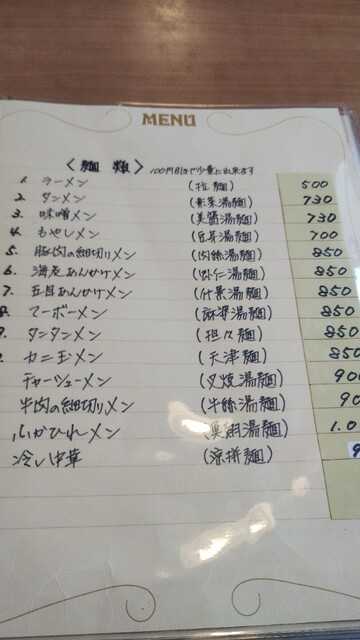 MENU
〈麺類〉 100円引きで少量に出来ます
1. ラーメン (拉麺) 500
2. タンメン (素菜湯麺) 730
3. 味噌メン (美醤湯麺) 730
4. もやしメン (豆芽湯麺) 700
5. 豚肉の細切りメン (肉絲湯麺) 850
6. 海老あんかけメン (虾仁湯麺) 850
7. 五目あんかけメン (什景湯麺) 850
8. マーボーメン (麻婆湯麺) 850
9. タンタンメン (担々麺) 850
カニ玉メン (天津麺) 850
チャーシューメン (叉焼湯麺) 900
牛肉の細切りメン (牛絲湯麺) 90
ふかひれメン 湯麺) 1.0
冷し中華 (涼拼麺) 9